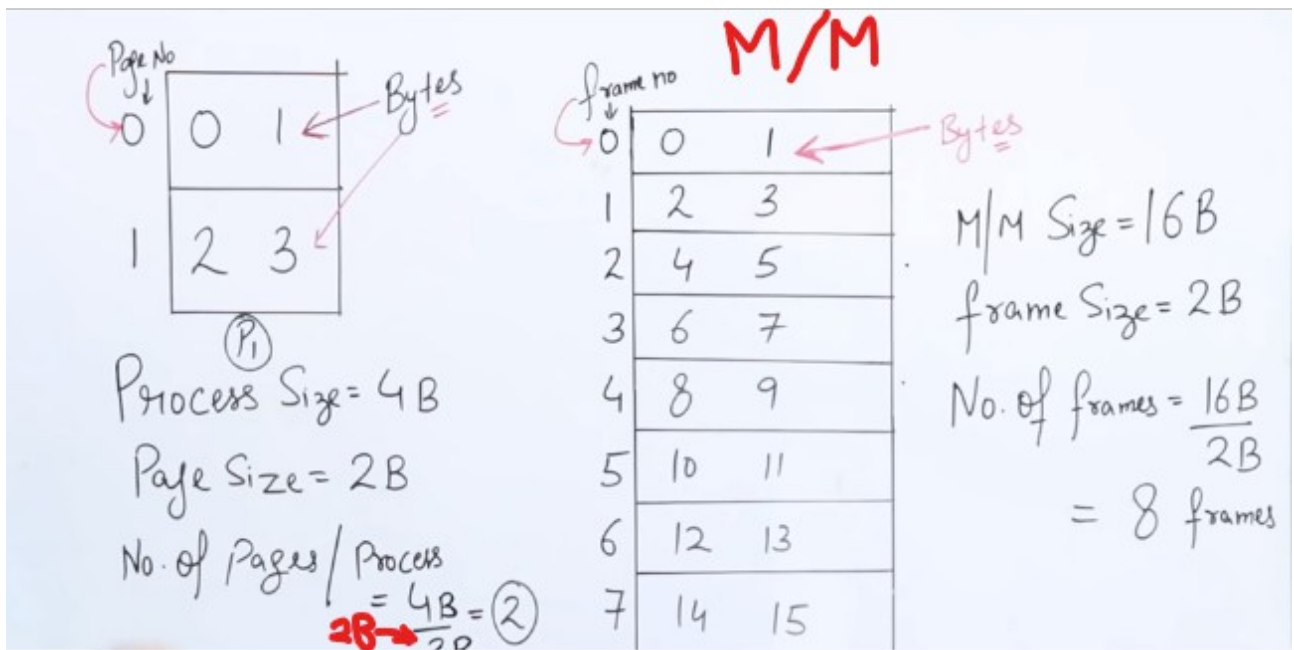 Page No
0 0 1
Bytes
1 2 3
P1
Process Size = 4B
Page Size = 2B
No. of Pages / Process
= 4B = 2
2B
2B
M/M
frame no
0 0 1
Bytes
1 2 3
2 4 5
3 6 7
4 8 9
5 10 11
6 12 13
7 14 15
M/M Size = 16B
frame Size = 2B
No. of frames = 16B
2B
= 8 frames